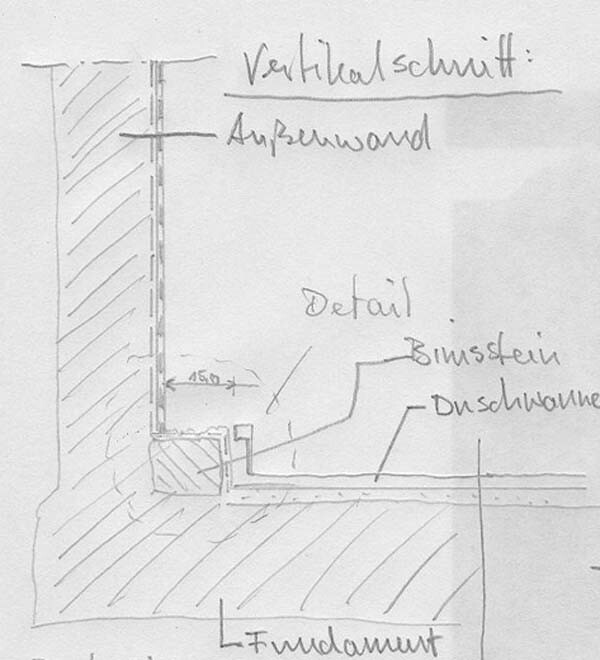 Vertikalschnitt:
Außenwand
Detail
15,0
Bimsstein
Duschwanne
Fundament